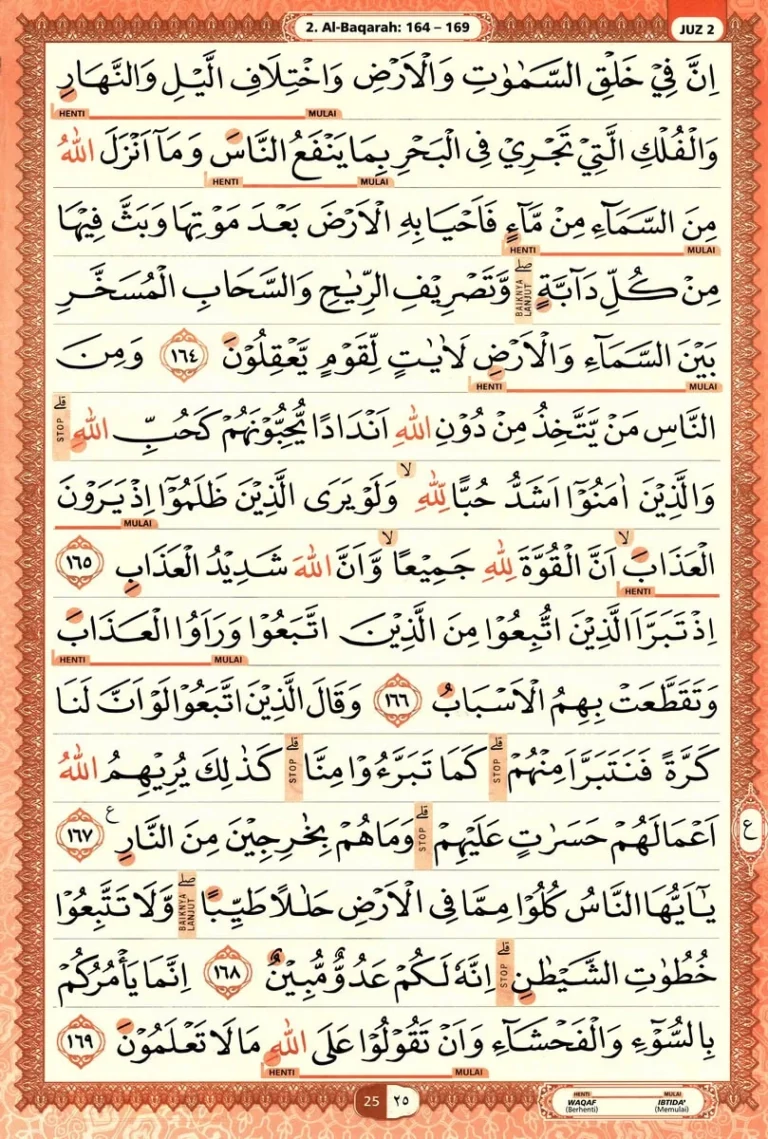 2. Al-Baqarah: 164 – 169
JUZ 2
اِنَّ فِيْ خَلْقِ السَّمٰوٰتِ وَالْاَرْضِ وَاخْتِلَافِ الَّيْلِ وَالنَّهَارِ
MULAI HENTI
وَالْفُلْكِ الَّتِيْ تَجْرِيْ فِى الْبَحْرِ بِمَا يَنْفَعُ النَّاسَ وَمَآ اَنْزَلَ اللّٰهُ
MULAI HENTI
مِنَ السَّمَاۤءِ مِنْ مَّاۤءٍ فَاَحْيَا بِهِ الْاَرْضَ بَعْدَ مَوْتِهَا وَبَثَّ فِيْهَا
MULAI HENTI
مِنْ كُلِّ دَاۤبَّةٍ ۖ BAIKNYA LANJUT وَّتَصْرِيْفِ الرِّيٰحِ وَالسَّحَابِ الْمُسَخَّرِ
بَيْنَ السَّمَاۤءِ وَالْاَرْضِ لَاٰيٰتٍ لِّقَوْمٍ يَّعْقِلُوْنَ ١٦٤ وَمِنَ
MULAI HENTI
النَّاسِ مَنْ يَّتَّخِذُ مِنْ دُوْنِ اللّٰهِ اَنْدَادًا يُّحِبُّوْنَهُمْ كَحُبِّ اللّٰهِ ۗ STOP
وَالَّذِيْنَ اٰمَنُوْٓا اَشَدُّ حُبًّا لِّلّٰهِ ۙ وَلَوْ يَرَى الَّذِيْنَ ظَلَمُوْٓا اِذْ يَرَوْنَ
MULAI
الْعَذَابَ ۙ اَنَّ الْقُوَّةَ لِلّٰهِ جَمِيْعًا ۙ وَّاَنَّ اللّٰهَ شَدِيْدُ الْعَذَابِ ١٦٥
HENTI
اِذْ تَبَرَّاَ الَّذِيْنَ اتُّبِعُوْا مِنَ الَّذِيْنَ اتَّبَعُوْا وَرَاَوُا الْعَذَابَ
MULAI HENTI
وَتَقَطَّعَتْ بِهِمُ الْاَسْبَابُ ١٦٦ وَقَالَ الَّذِيْنَ اتَّبَعُوْا لَوْ اَنَّ لَنَا
كَرَّةً فَنَتَبَرَّاَ مِنْهُمْ ۗ STOP كَمَا تَبَرَّءُوْا مِنَّا ۗ STOP كَذٰلِكَ يُرِيْهِمُ اللّٰهُ
اَعْمَالَهُمْ حَسَرٰتٍ عَلَيْهِمْ ۗ STOP وَمَا هُمْ بِخٰرِجِيْنَ مِنَ النَّارِ ࣖ ١٦٧
ع
يٰٓاَيُّهَا النَّاسُ كُلُوْا مِمَّا فِى الْاَرْضِ حَلٰلًا طَيِّبًا ۖ BAIKNYA LANJUT وَّلَا تَتَّبِعُوْا
خُطُوٰتِ الشَّيْطٰنِ ۗ STOP اِنَّهٗ لَكُمْ عَدُوٌّ مُّبِيْنٌ ١٦٨ اِنَّمَا يَأْمُرُكُمْ
بِالسُّوْۤءِ وَالْفَحْشَاۤءِ وَاَنْ تَقُوْلُوْا عَلَى اللّٰهِ مَا لَا تَعْلَمُوْنَ ١٦٩
MULAI HENTI
25 ٢٥
HENTI MULAI
WAQAF IBTIDA'
(Berhenti) (Memulai)